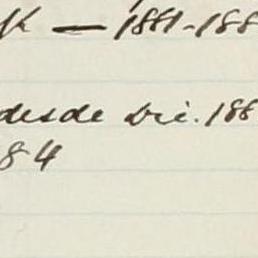 K — 1881-188
desde Dic. 188
84